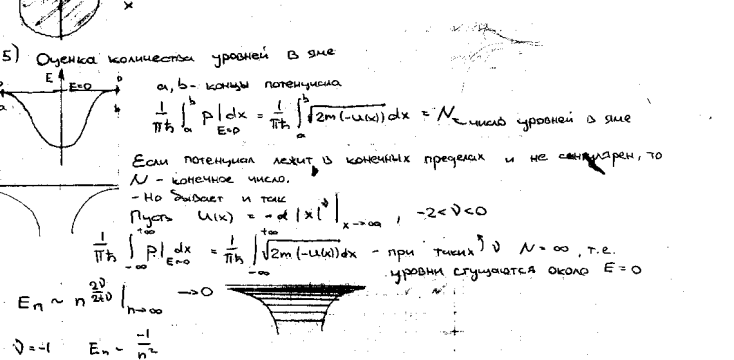 x
5) Оценка количества уровней в яме
E E=0
a b
a, b - концы потенциала
1/πħ ∫_a^b p|_{E=0} dx = 1/πħ ∫_a^b √(2m(-U(x))) dx = N ← число уровней в яме
Если потенциал лежит в конечных пределах и не сингулярен, то
N - конечное число.
- Но бывает и так
Пусть U(x) = -α |x|^ν |_{x→∞} , -2<ν<0
1/πħ ∫_{-∞}^{+∞} p|_{E=0} dx = 1/πħ ∫_{-∞}^{+∞} √(2m(-U(x))) dx - при таких ν N = ∞, т.е.
уровни сгущаются около E = 0
E_n ~ n^{2ν/(2+ν)} |_{n→∞} → 0
ν = -1 E_n ~ -1/n²